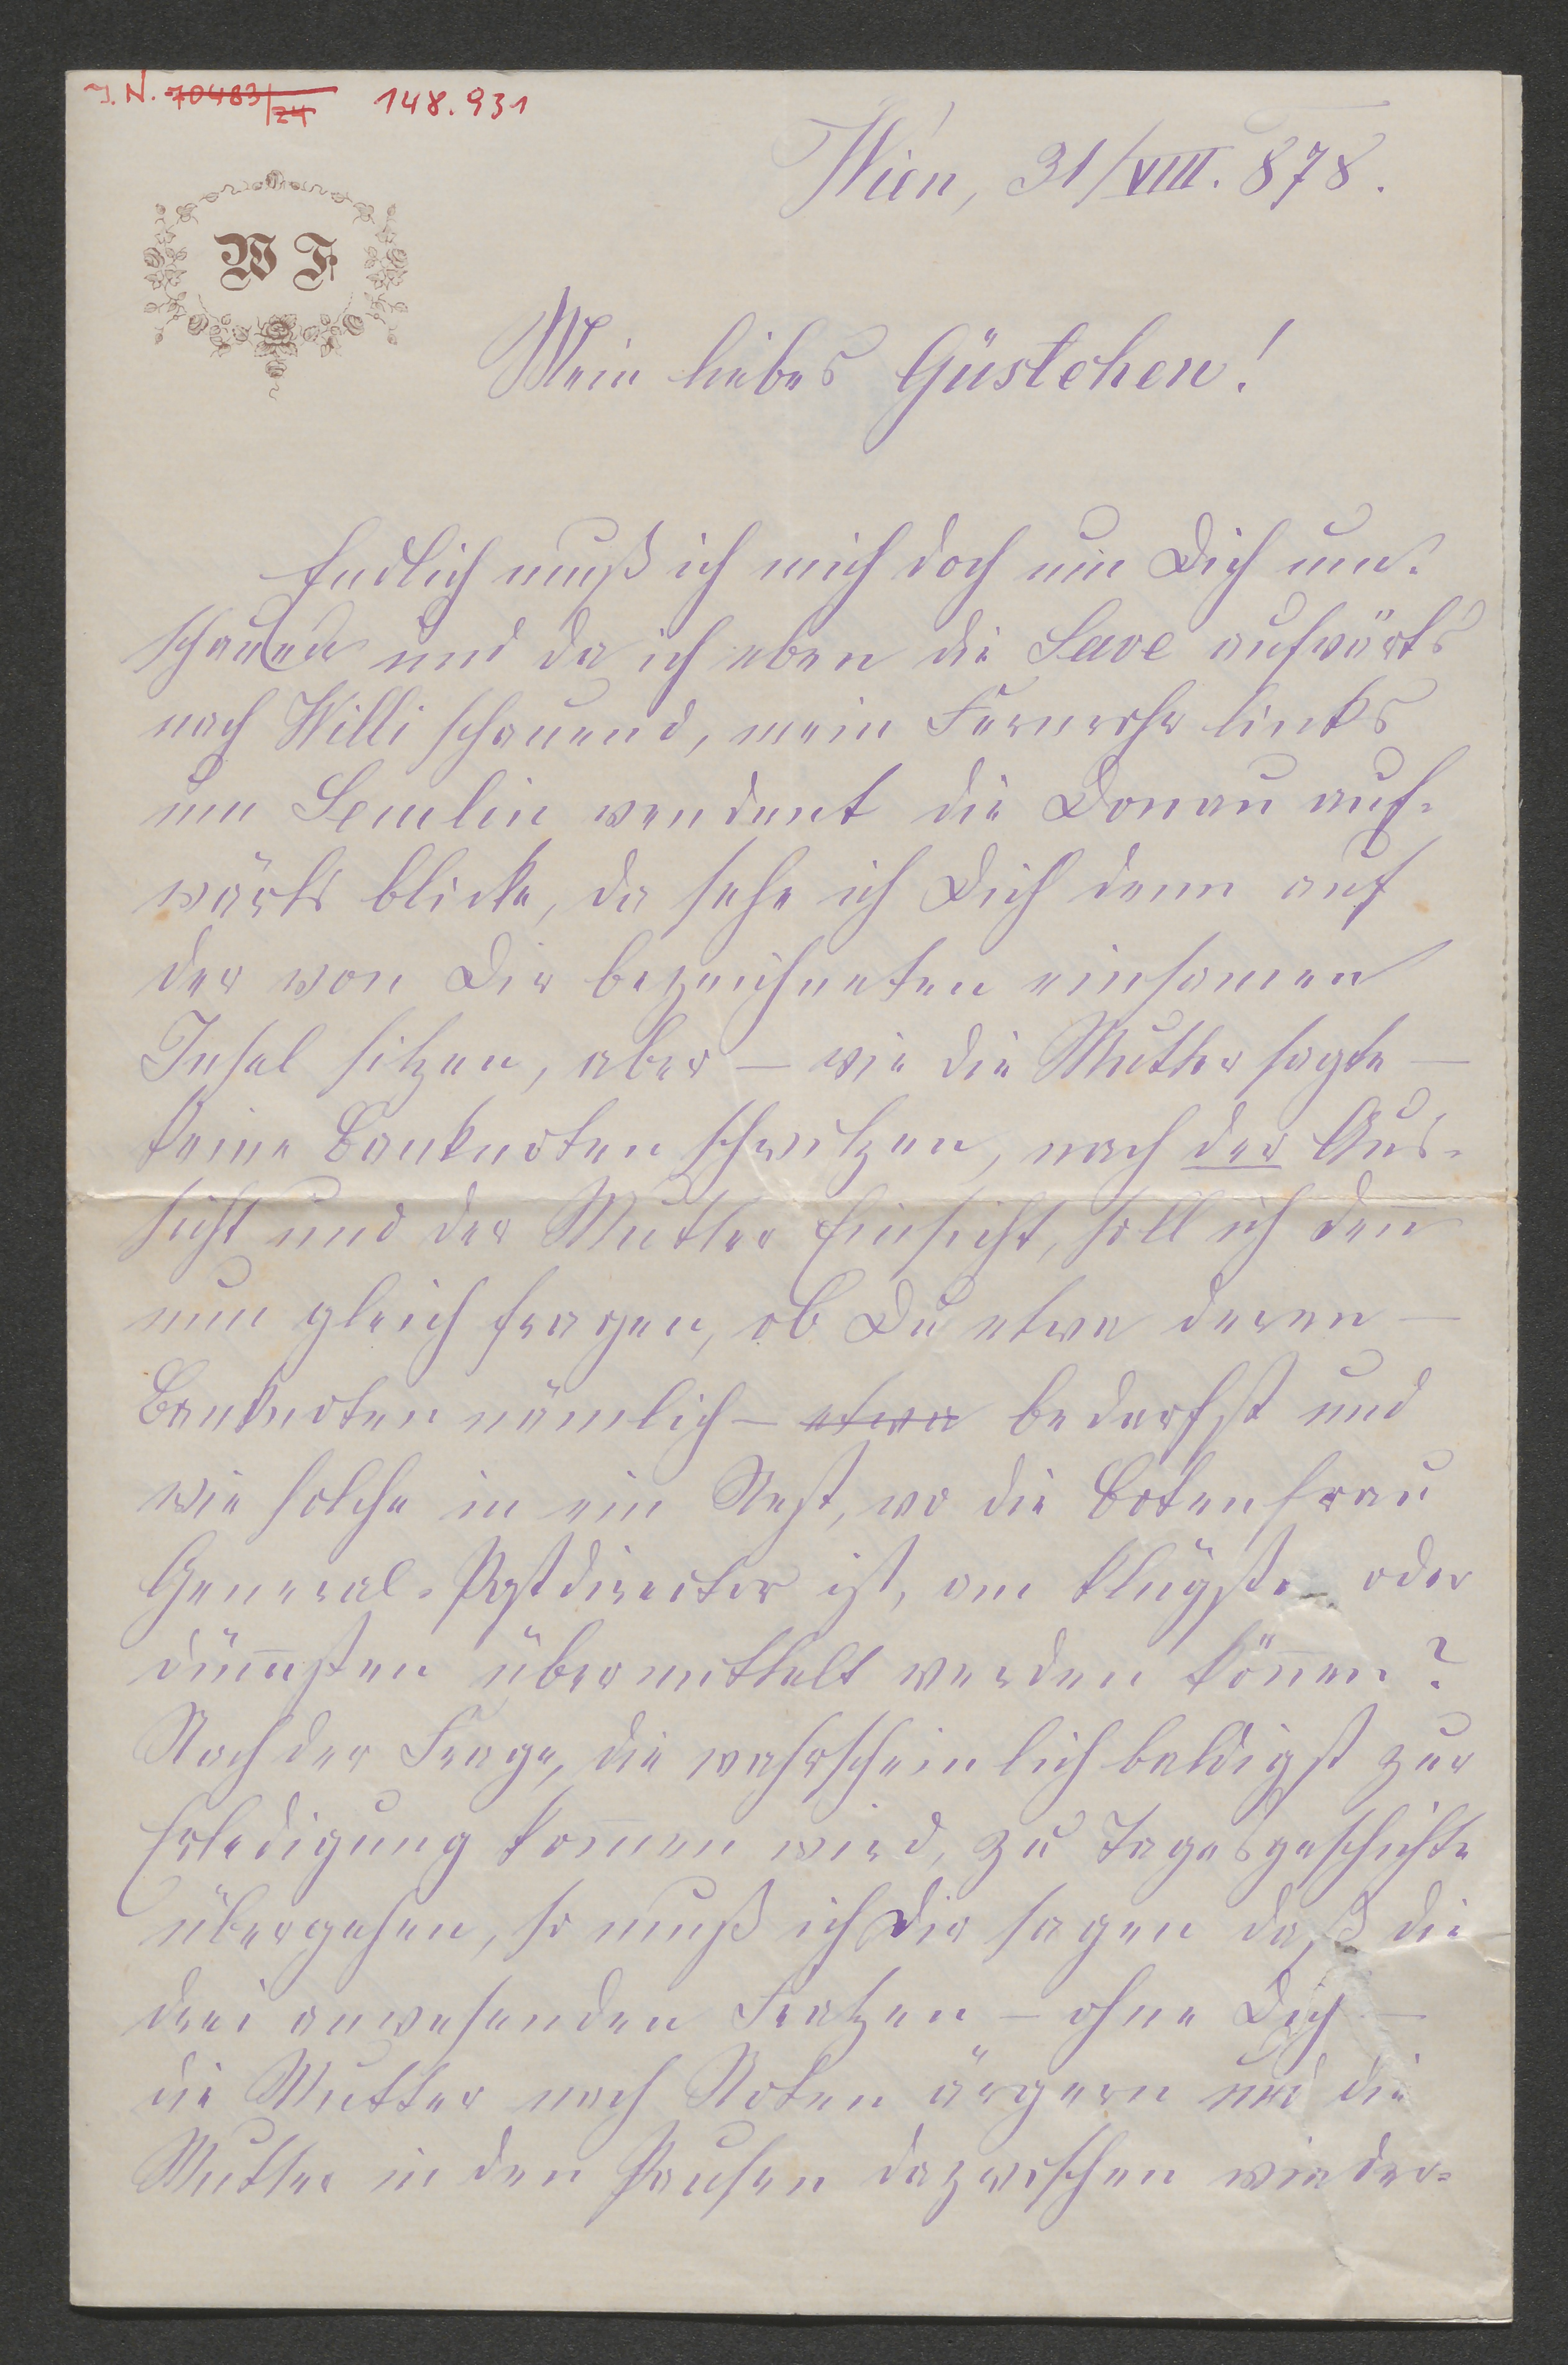 I. N. 70483/24 148.931
Wien, 31/VIII. 878.
W F
Mein liebes Güstchen!
Endlich muß ich mich doch um Dich um-
schauen und da ich eben die Save aufwärts
nach Willi schauend, mein Fernrohr links
um Semlin wendent die Donau auf-
wärts blicke, da sehe ich Dich denn auf
der von Dir bezeichneten einsamen
Insel sitzen, aber – wie die Mutter sagte –
keine Banknoten schwitzen, nach der Aus-
sicht und der Mutter Einsicht, soll ich deñ
nun gleich fragen, ob Du etwa deren –
Banknoten nämlich – etwa bedarfst und
wie solche in ein Nest, wo die Botenfrau
General-Postdirector ist, am klügsten oder
düm̅sten übermittelt werden köñen?
Nach der Frage, die wahrscheinlich baldigst zur
Erledigung kom̅en wird, zu Tagesgeschichte
übergehen, so muß ich Dir sagen daß die
drei anwesenden Fratzen – ohne Dich –
die Mutter nach Noten ärgern und die
Mutter in den Pausen dazwischen wieder-